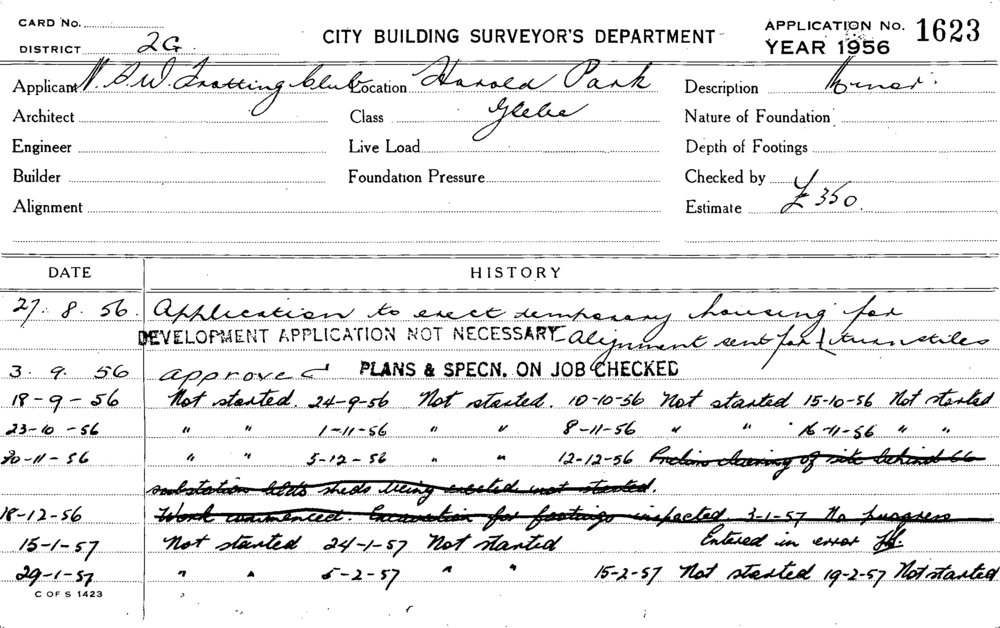 CARD No.
DISTRICT 2G
CITY BUILDING SURVEYOR'S DEPARTMENT
APPLICATION No. 1623
YEAR 1956
Applicant N.S.W. Trotting Club Location Harold Park Description Minor.
Architect Class Glebe Nature of Foundation
Engineer Live Load Depth of Footings
Builder Foundation Pressure Checked by
Alignment Estimate £350.
DATE HISTORY
27. 8. 56. Application to erect temporary housing for
DEVELOPMENT APPLICATION NOT NECESSARY Alignment sent for turnstiles
3. 9. 56 approved PLANS & SPECN. ON JOB CHECKED
18-9-56 Not started. 24-9-56 Not started. 10-10-56 Not started 15-10-56 Not started
23-10-56 " " 1-11-56 " " 8-11-56 " " 16-11-56 " "
20-11-56 " " 5-12-56 " " 12-12-56 Prelim clearing of site behind
substation sheds being erected not started.
18-12-56 Work commenced. Excavation for footings inspected. 3-1-57 No progress
15-1-57 Not started 24-1-57 Not started Entered in error
29-1-57 " " 5-2-57 " " 15-2-57 Not started 19-2-57 Not started
C OF S 1423